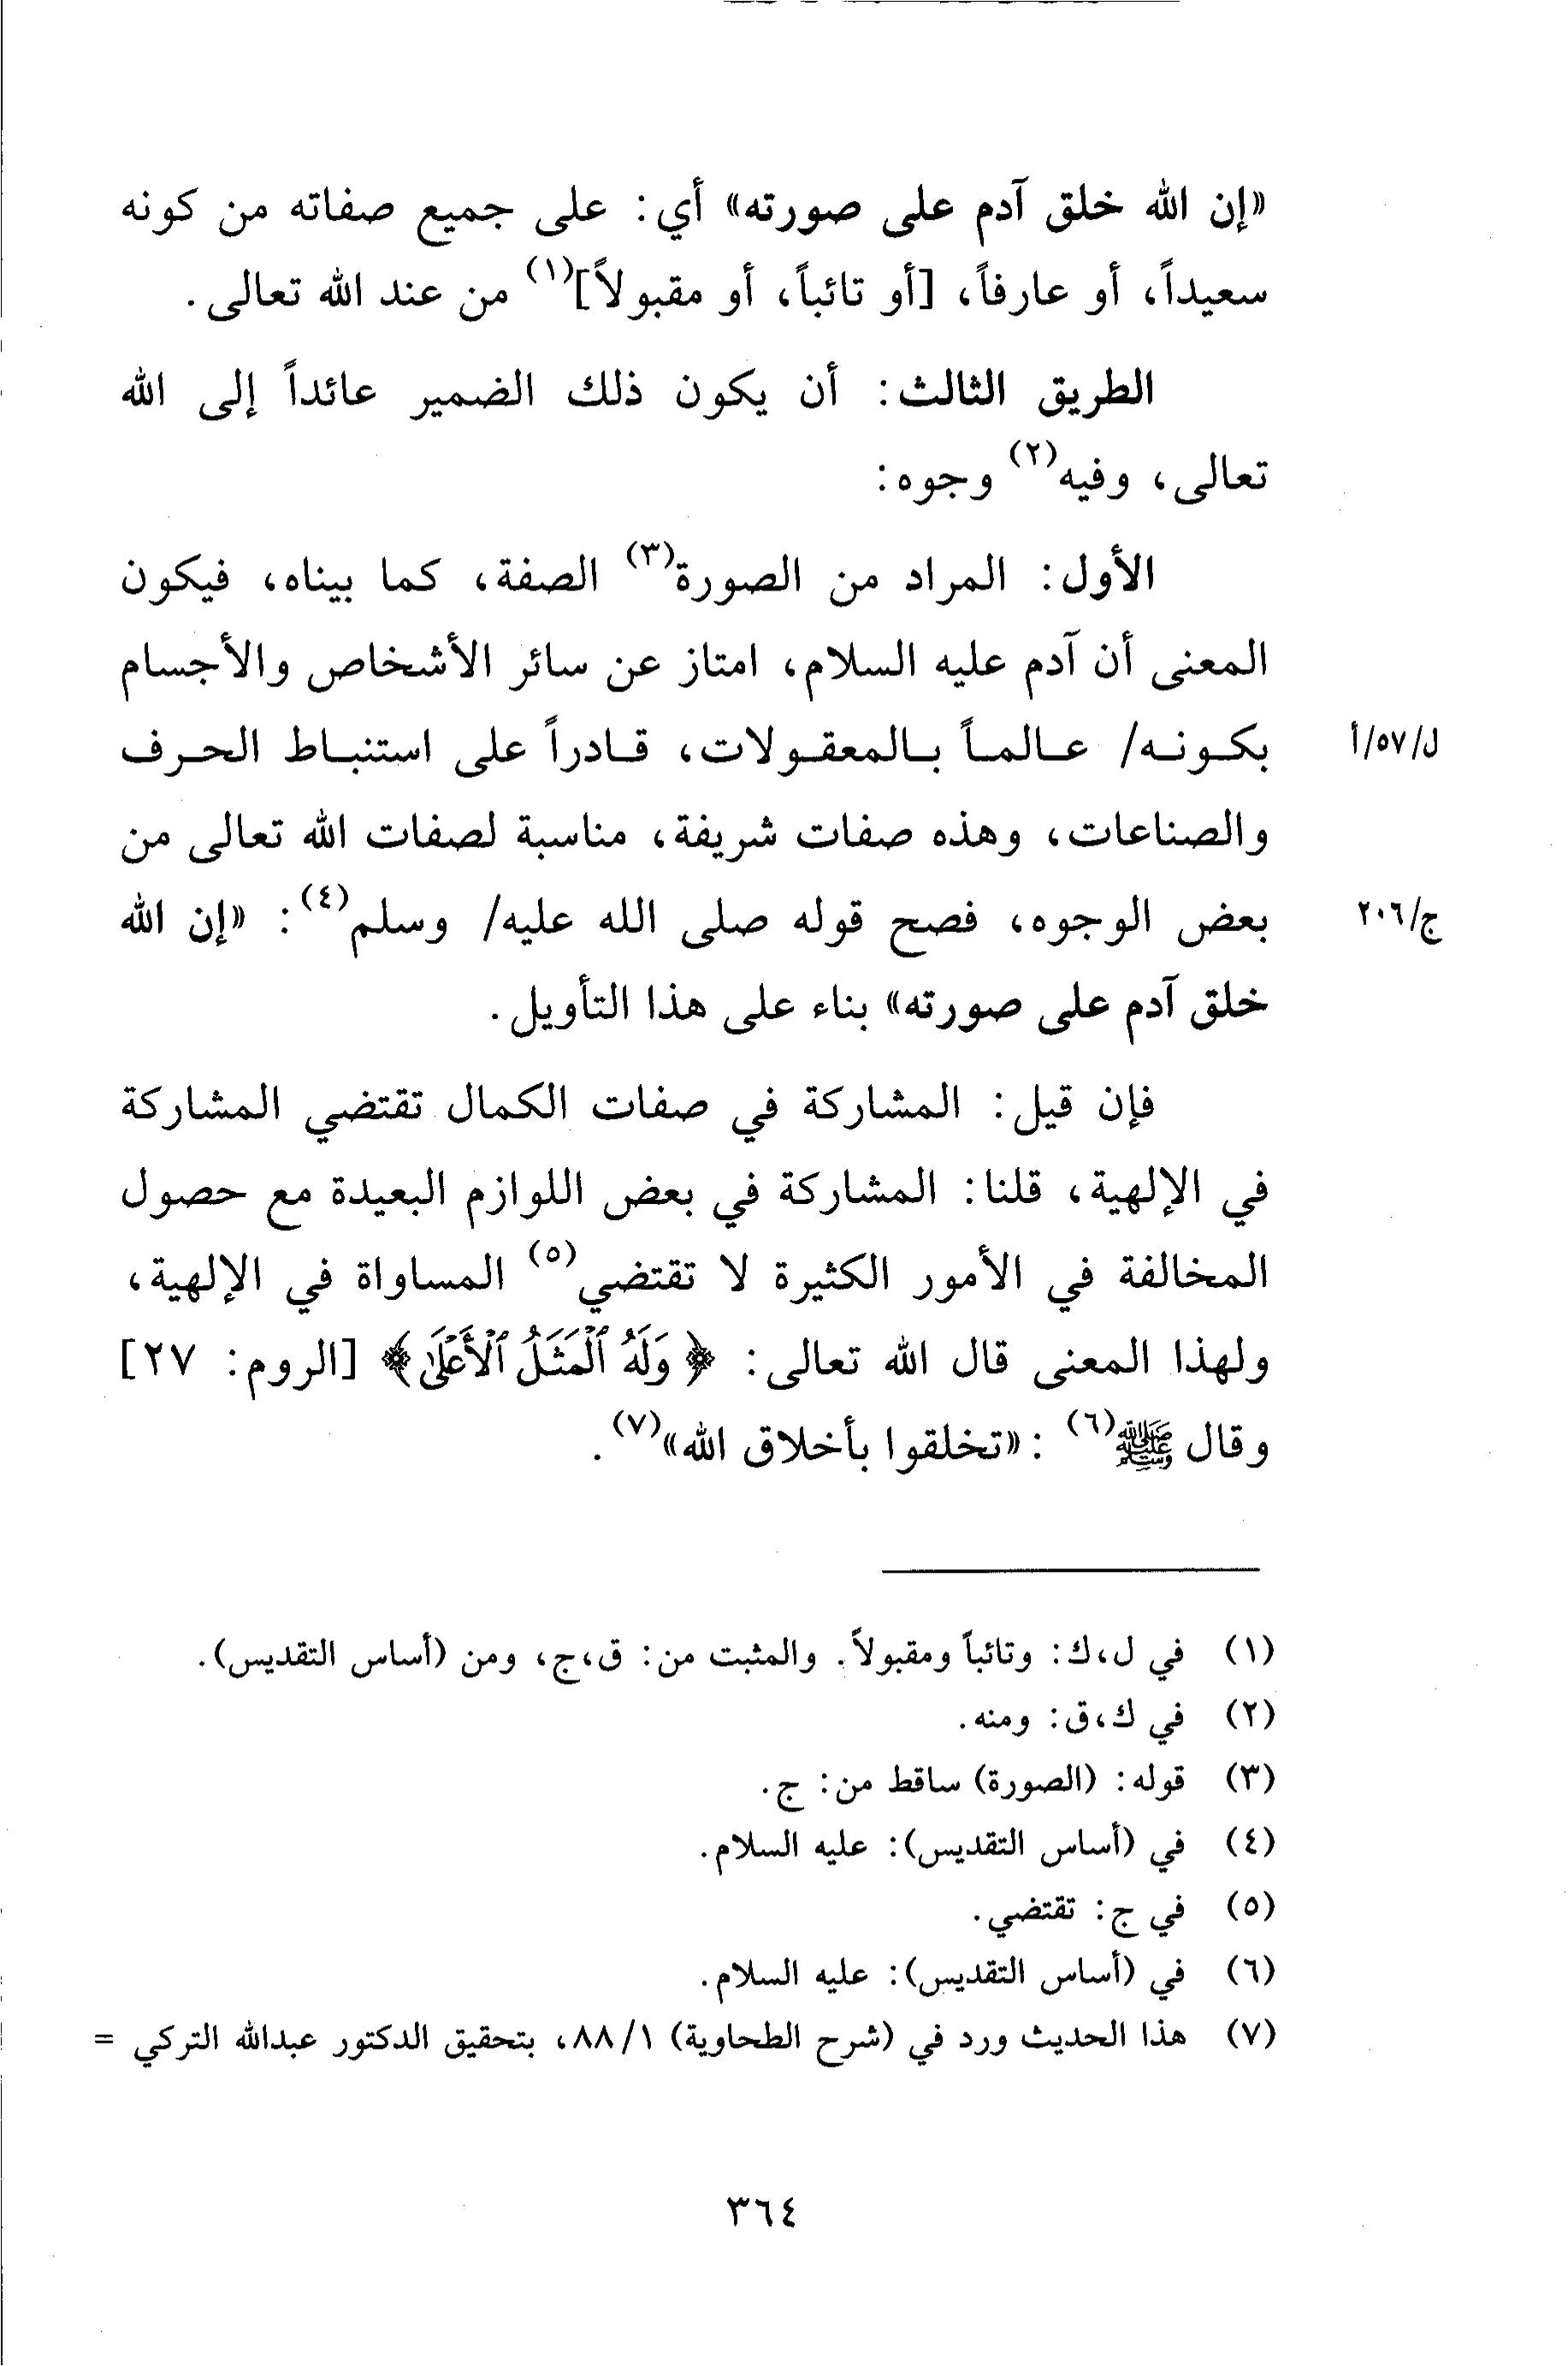 «إن الله خلق آدم على صورته» أي: على جميع صفاته من كونه
سعيداً، أو عارفاً، [أو تائباً، أو مقبولاً](١) من عند الله تعالى.
الطريق الثالث: أن يكون ذلك الضمير عائداً إلى الله
تعالى، وفيه(٢) وجوه:
الأول: المراد من الصورة(٣) الصفة، كما بيناه، فيكون
المعنى أن آدم عليه السلام، امتاز عن سائر الأشخاص والأجسام
بكونه/ عالماً بالمعقولات، قادراً على استنباط الحرف
ل/٥٧/أ
والصناعات، وهذه صفات شريفة، مناسبة لصفات الله تعالى من
بعض الوجوه، فصح قوله صلى الله عليه/ وسلم(٤): «إن الله
ج/٢٠٦
خلق آدم على صورته» بناء على هذا التأويل.
فإن قيل: المشاركة في صفات الكمال تقتضي المشاركة
في الإلهية، قلنا: المشاركة في بعض اللوازم البعيدة مع حصول
المخالفة في الأمور الكثيرة لا تقتضي(٥) المساواة في الإلهية،
ولهذا المعنى قال الله تعالى: ﴿وَلَهُ ٱلْمَثَلُ ٱلْأَعْلَىٰ﴾ [الروم: ٢٧]
وقال ﷺ(٦) : «تخلقوا بأخلاق الله»(٧).
(١) في ل،ك: وتائباً ومقبولاً. والمثبت من: ق،ج، ومن (أساس التقديس).
(٢) في ك،ق: ومنه.
(٣) قوله: (الصورة) ساقط من: ج.
(٤) في (أساس التقديس): عليه السلام.
(٥) في ج: تقتضي.
(٦) في (أساس التقديس): عليه السلام.
(٧) هذا الحديث ورد في (شرح الطحاوية) ١/ ٨٨، بتحقيق الدكتور عبدالله التركي =
٣٦٤